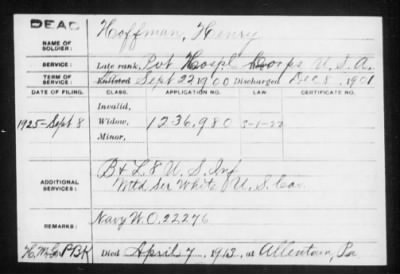 DEAD
NAME OF SOLDIER: Hoffman, Henry
SERVICE: Late rank, Pvt Hospl Corps U. S. A.
TERM OF SERVICE: Enlisted Sept 22 1900 Discharged Dec 8, 1901
DATE OF FILING. CLASS. APPLICATION NO. LAW CERTIFICATE NO.
Invalid,
1925-Sept 8 Widow, 1236,980 3-1-22
Minor,
ADDITIONAL SERVICES: B & L, 8 U. S. Inf
Mtd Ser White U. S. Cav.
REMARKS: Navy W.O. 22276
PBK Died April 7, 1913, at Allentown, Pa